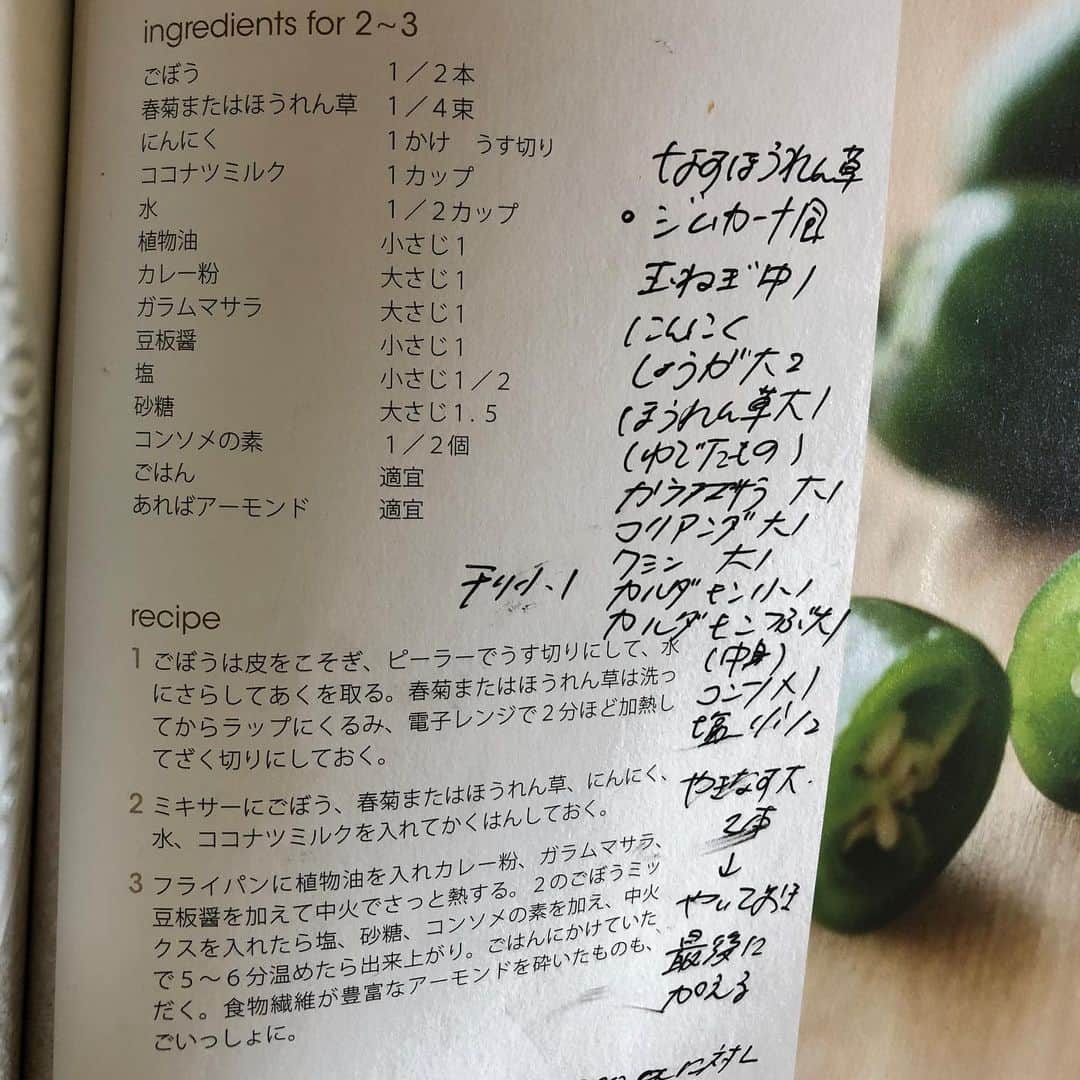 ingredients for 2~3
ごぼう 1/2本
春菊またはほうれん草 1/4束
にんにく 1かけ うす切り
ココナツミルク 1カップ
水 1/2カップ
植物油 小さじ1
カレー粉 大さじ1
ガラムマサラ 大さじ1
豆板醤 小さじ1
塩 小さじ1/2
砂糖 大さじ1.5
コンソメの素 1/2個
ごはん 適宜
あればアーモンド 適宜
recipe
1 ごぼうは皮をこそぎ、ピーラーでうす切りにして、水
にさらしてあくを取る。春菊またはほうれん草は洗っ
てからラップにくるみ、電子レンジで2分ほど加熱し
てざく切りにしておく。
2 ミキサーにごぼう、春菊またはほうれん草、にんにく、
水、ココナツミルクを入れてかくはんしておく。
3 フライパンに植物油を入れカレー粉、ガラムマサラ、
豆板醤を加えて中火でさっと熱する。2のごぼうミッ
クスを入れたら塩、砂糖、コンソメの素を加え、中火
で5〜6分温めたら出来上がり。ごはんにかけていた
だく。食物繊維が豊富なアーモンドを砕いたものも、
ごいっしょに。
なすほうれん草
ジムカーナ風
玉ねぎ中1
にんにく
しょうが大2
ほうれん草大1
(ゆでたもの)
ガラムマサラ 大1
コリアンダ大1
クミン 大1
チリ小1
カルダモン小1
カルダモンつぶ大1
(中身)
コンソメ1
塩小1/2
やきなす大
2本
↓
やいておき
最後に
加える
に対し